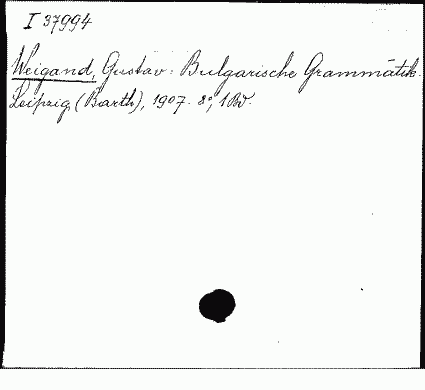 I 37994
Weigand, Gustav: Bulgarische Grammatik.
Leipzig (Barth), 1907. 8°, 1 Bd.